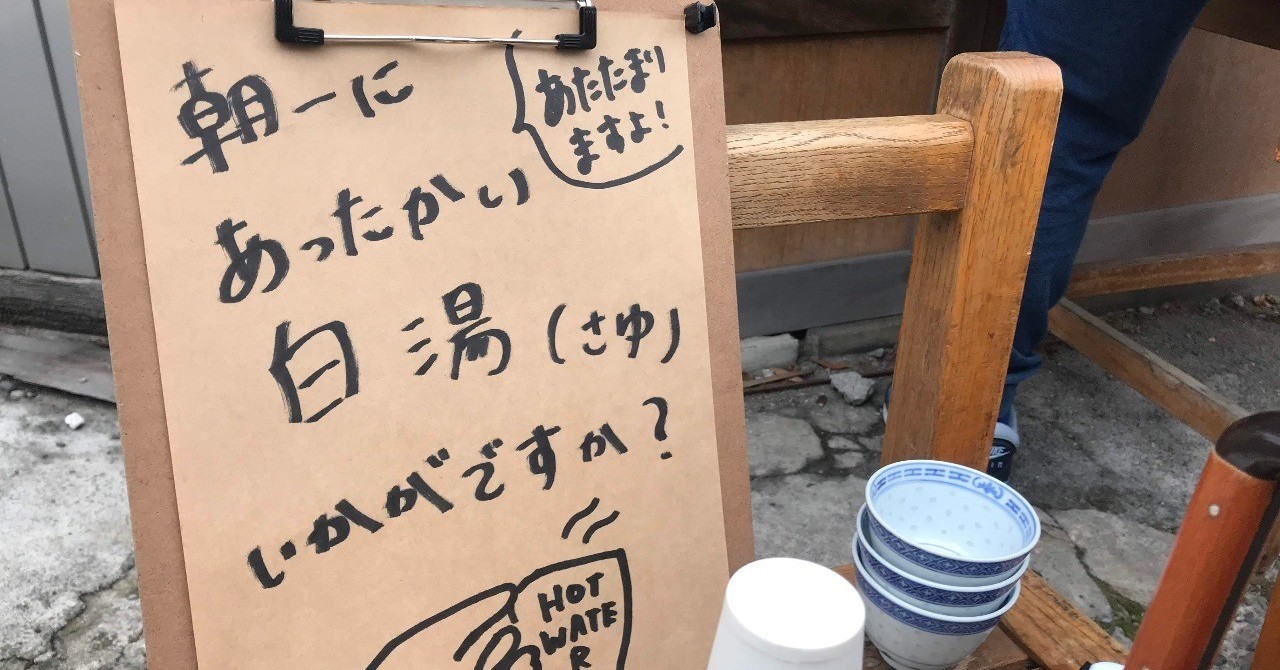 朝一に
あたたまり
ますよ!
あったかい
白湯(さゆ)
いかがですか?
HOT
WATE
R
NIKE